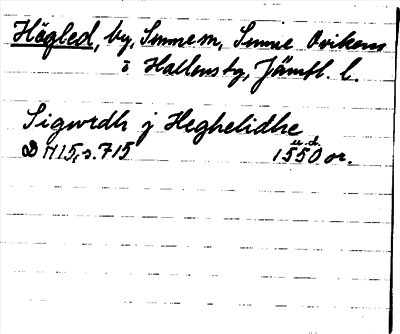 Högled, by, Sunne sn, Sunne Ovikens
o Hallens tg, Jämtl. l.
Sigurdh j Heghelidhe
u. d.
D 1715, s. 715 1550 or.